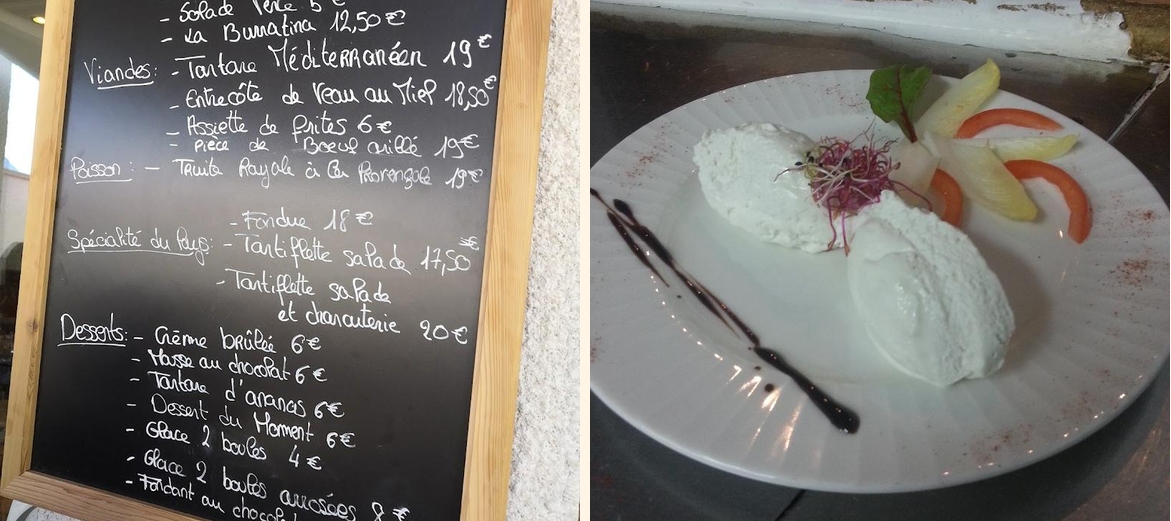 - Salade Verte 5 €
- La Burratina 12,50 €
Viandes: - Tartare Méditerranéen 19 €
- Entrecôte de Veau au Miel 18,50 €
- Assiette de frites 6 €
- Pièce de Boeuf grillé 19 €
Poisson: - Truite Royale à la Provençale 19 €
- Fondue 18 €
Spécialité du Pays: - Tartiflette salade 17,50 €
- Tartiflette salade
et charcuterie 20 €
Desserts: - Crème brûlée 6 €
- Mousse au chocolat 6 €
- Tartare d'ananas 6 €
- Dessert du Moment 6 €
- Glace 2 boules 4 €
- Glace 2 boules arrosées 8 €
- Fondant au chocolat